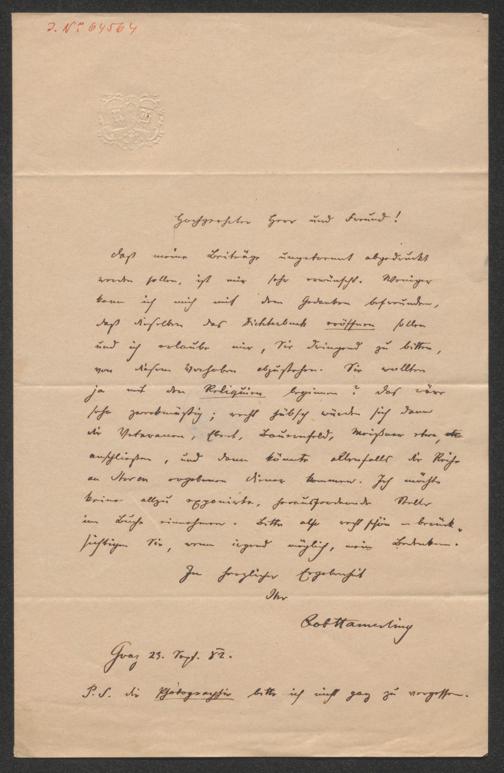 J. Nr 64564
Hochgeehrter Herr und Freund!
Daß meine Beiträge ungetrennt abgedruckt
werden sollen, ist mir sehr erwünscht. Weniger
kann ich mich mit dem Gedanken befreunden,
daß dieselben das Dichterbuch eröffnen sollen
und ich erlaube mir, Sie dringend zu bitten,
von diesem Vorhaben abzustehen. Sie wollten
ja mit den Reliquien beginnen? Das wäre
sehr zweckmäßig; recht hübsch würden sich dann
die Veteranen, Ebert, Bauernfeld, Meißner etwa,
anschließen, und dann könnte allenfalls die Reihe
an Ihren ergebenen Diener kommen. Ich möchte
keine allzu exponirte, herausfordernde Stelle
im Buche einnehmen. Bitte also recht schön – berück-
sichtigen Sie, wenn irgend möglich, mein Bedenken.
In herzlicher Ergebenheit
Ihr
RobHamerling
Graz 23. Sept. 82.
P. S. Die Photographie bitte ich nicht ganz zu vergessen.